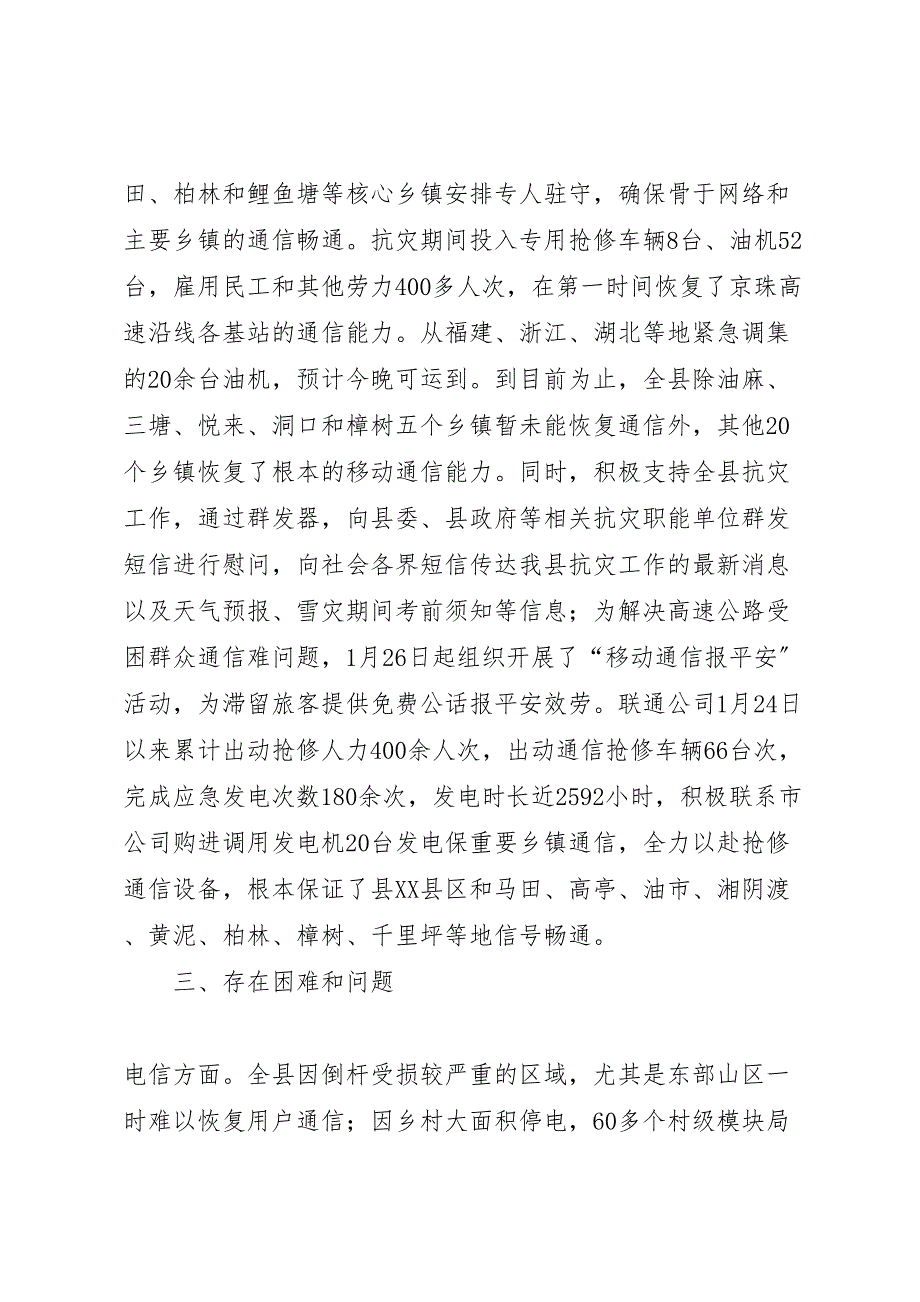 田、柏林和鲤鱼塘等核心乡镇安排专人驻守，确保骨于网络和
主要乡镇的通信畅通。抗灾期间投入专用抢修车辆8台、油机52
台，雇用民工和其他劳力400多人次，在第一时间恢复了京珠高
速沿线各基站的通信能力。从福建、浙江、湖北等地紧急调集
的20余台油机，预计今晚可运到。到目前为止，全县除油麻、
三塘、悦来、洞口和樟树五个乡镇暂未能恢复通信外，其他20
个乡镇恢复了根本的移动通信能力。同时，积极支持全县抗灾
工作，通过群发器，向县委、县政府等相关抗灾职能单位群发
短信进行慰问，向社会各界短信传达我县抗灾工作的最新消息
以及天气预报、雪灾期间考前须知等信息；为解决高速公路受
困群众通信难问题，1月26日起组织开展了“移动通信报平安〞
活动，为滞留旅客提供免费公话报平安效劳。联通公司1月24日
以来累计出动抢修人力400余人次，出动通信抢修车辆66台次，
完成应急发电次数180余次，发电时长近2592小时，积极联系市
公司购进调用发电机20台发电保重要乡镇通信，全力以赴抢修
通信设备，根本保证了县XX县区和马田、高亭、油市、湘阴渡
、黄泥、柏林、樟树、千里坪等地信号畅通。
三、存在困难和问题
电信方面。全县因倒杆受损较严重的区域，尤其是东部山区一
时难以恢复用户通信；因乡村大面积停电，60多个村级模块局